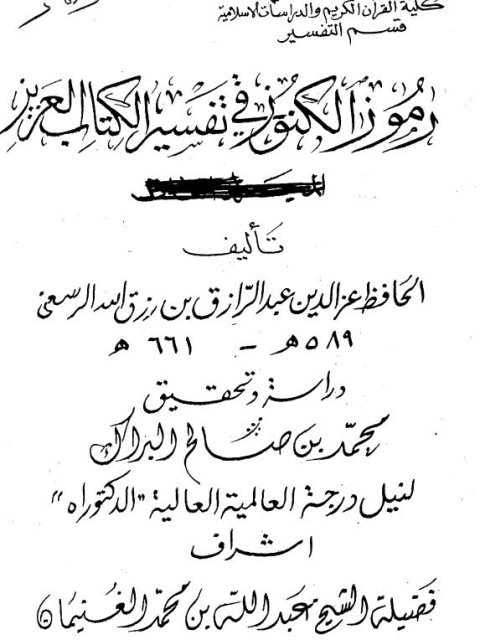 كلية القرآن الكريم والدراسات الاسلامية
قسم التفسير
رموز الكنوز في تفسير الكتاب العزيز
تأليف
الحافظ عز الدين عبد الرازق بن رزق الله الرسعني
٥٨٩ هـ - ٦٦١ هـ
دراسة وتحقيق
محمد بن صالح البراك
لنيل درجة العالمية العالية "الدكتوراه"
اشراف
فضيلة الشيخ عبد الله بن محمد الغنيمان